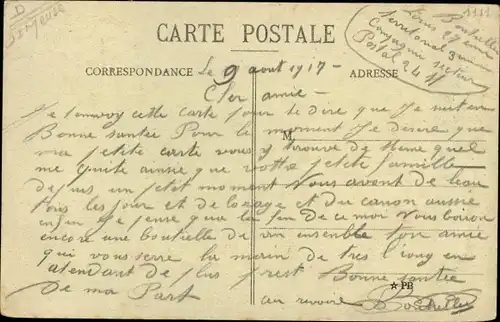 D
St Meuse
1111
Louis Bouteiller
27 eme
territorial 9 eme
Compagnie secteur
Postal 24
CARTE POSTALE
CORRESPONDANCE
ADRESSE
Le 9 aout 1917 -
Cher amie -
Je tanvoy cette carte pour te dire que Je suit en
Bonne santee Pour le moment Je desire que
M
ma petite carte vous y trouve de meme quel
me quite aussie que votre petite famille
depuis un petit moment Nous avont de leau
tous les jour et de lorage et du canon aussie
enfin Je pense que la fin de ce moi Nous boiron
encore une bouteille de vin ensemble ton amie
qui vous serre la main de tres loing en
atendant de plus prest Bonne santee
de ma Part
au revoire
☆ PB
Bouteiller